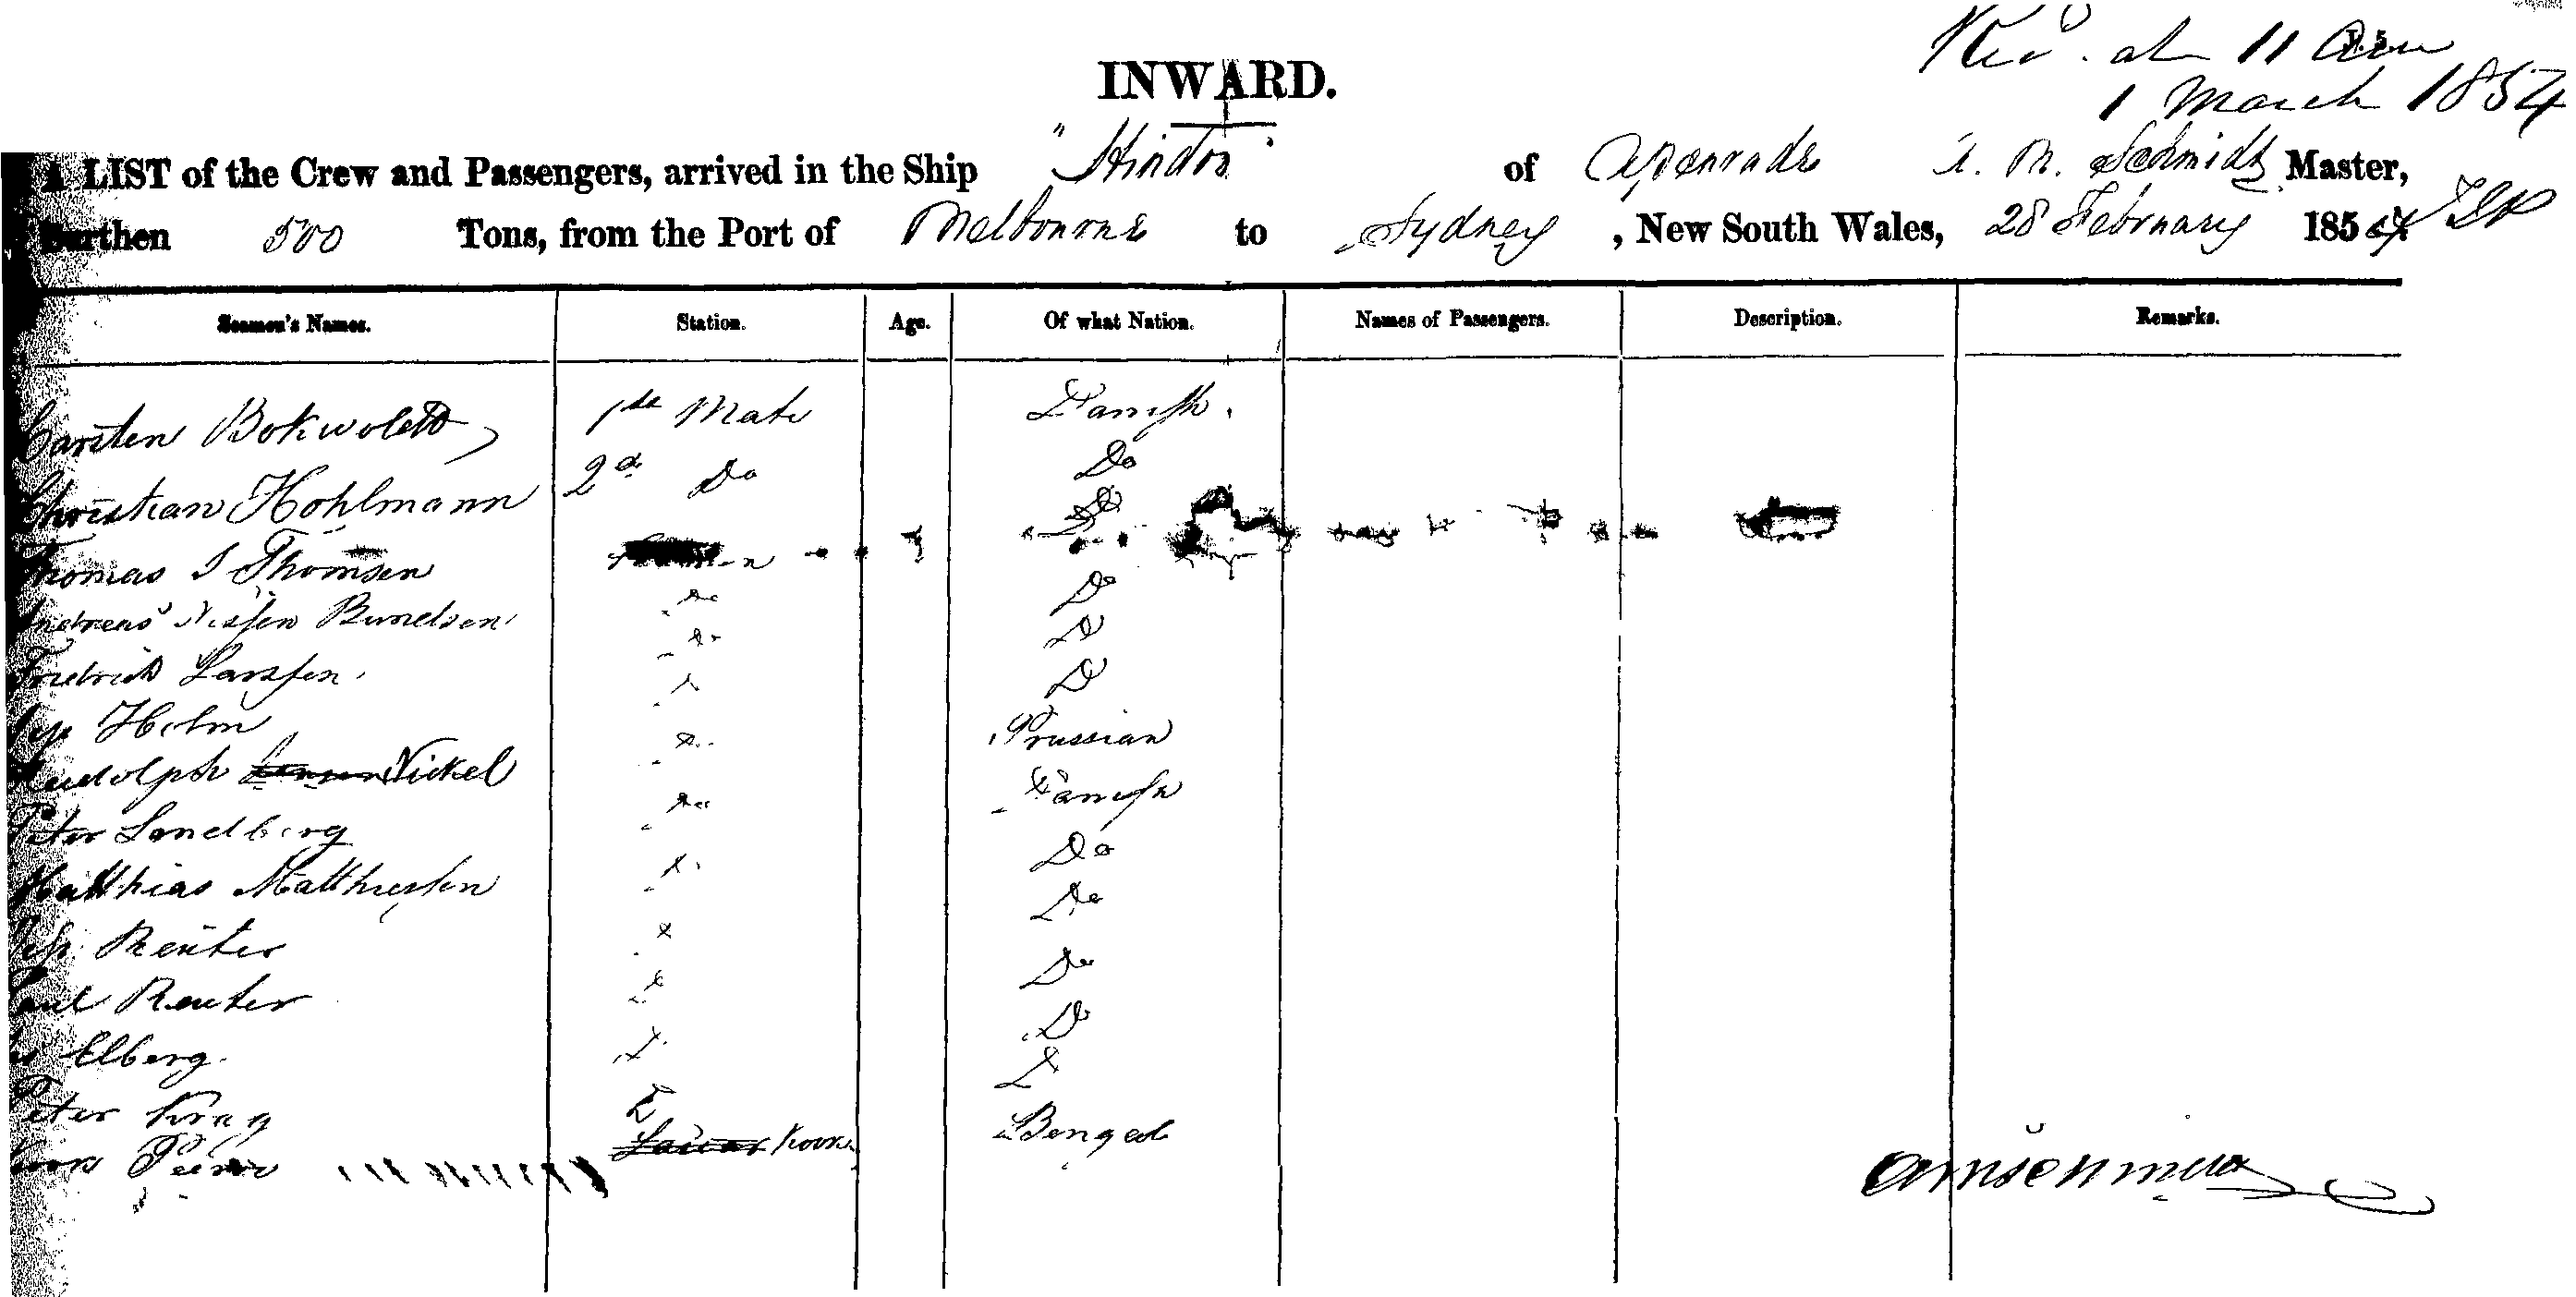 Recd. at 11 am
1 March 1854
INWARD.
A LIST of the Crew and Passengers, arrived in the Ship "Hindoo" of Apenrade A. M. Schmidt Master,
Burthen 500 Tons, from the Port of Melbourne to Sydney, New South Wales, 28 February 1854
Seamen's Names. Station. Age. Of what Nation. Names of Passengers. Description. Remarks.
Carsten Bokwoldt 1ste Mate Danish.
Christian Hohlmann 2d Do Do
Thomas I Thomsen D
Andreas Nissen Do Do
Fredrick Larssen Do D
Jep Holm D D
Rudolph Nickel Do Prussian
Peter Sandberg Do Danish
Matthias Matthiessen D Do
Jep Reuter D Do
Paul Reuter D Do
Elberg D D
Peter Krag D D
Bengal
AMSchmidt